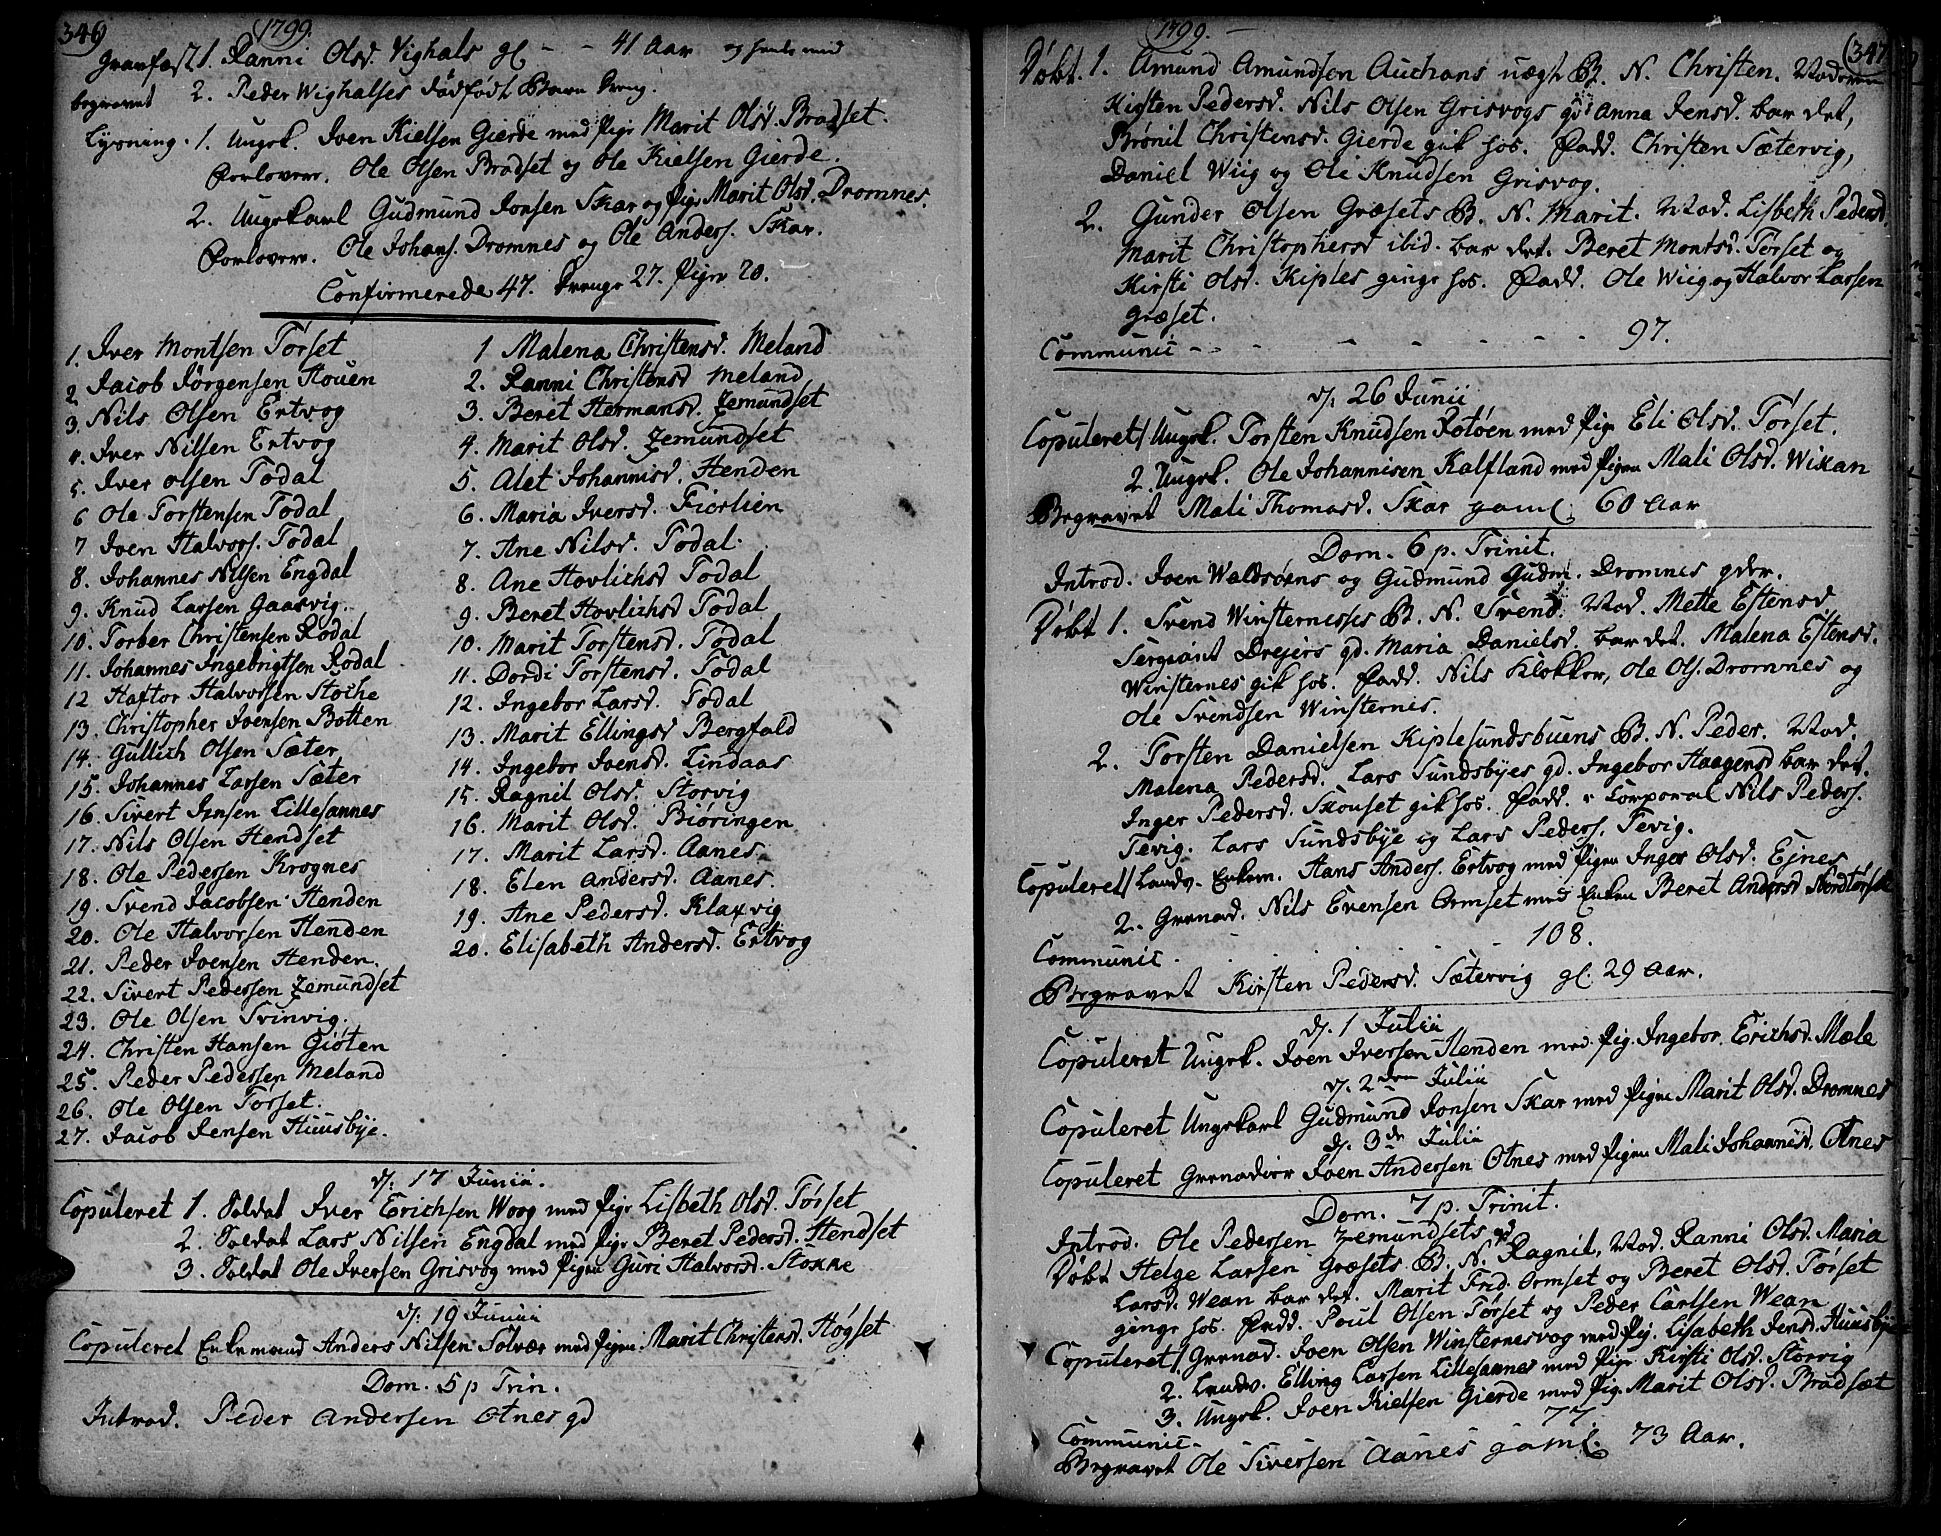 346 1799.
Gravfæst 1. Ranni Olsd. Vighals gl - - 41 Aar og hendes med
begravet 2. Peder Wighalses dødfødt Barn Dreng.
Lysning. 1. Ungk. Joen Kielsen Gierde med Pige Marit Olsd. Bradset
Forlovere. Ole Olsen Bradset og Ole Kielsen Gierde.
2. Ungekarl Gudmund Jonsen Skar og Pige Marit Olsd. Dromnes.
Forlovere. Ole Johans. Dromnes og Ole Anders. Skar.
Confirmerede 47. Drenge 27. Piger 20.
1. Iver Montsen Torset
2 Jacob Jørgensen Houen
3. Nils Olsen Ertvog
4. Iver Nilsen Ertvog
5. Iver olsen Todal
6 Ole Torstensen Todal
7 Joen Halvors. Todal
8. Johannes Nilsen Engdal
9. Knud Larsen Gaasvig.
10. Torber Christensen Rodal
11. Johannes Ingebrigtsen Rodal
12 Haftor Halvorsen Stoche
13. Christopher Joensen Botten
14. Gullich Olsen Sæter
15. Johannes Larsen Sæter
16. Sivert Jensen Lillesannes
17. Nils Olsen Hendset
18. Ole Pedersen Krognes
19. Svend Jacobsen Henden
20. Ole Halvorsen Henden
21. Peder Joensen Henden.
22. Sivert Pedersen Zemundset
23. Ole Olsen Svinvig.
24. Christen Hansen Giøten
25. Peder Pedersen Meland
26. Ole Olsen Torset.
27. Jacob Jensen Huusbye.
1 Malena Christensd. Meland
2. Ranni Christensd Meland
3. Beret Hermansd. Zemundset
4. Marit Olsd. Zemundset
5. Alet Johannisd. Henden
6. Maria Iversd. Fiorlien
7. Ane Nilsd. Todal.
8. Ane Hovlichsd Todal
9. Beret Hovlichsd Todal
10. Marit Torstensd. Todal
11. Dordi Torstensd. Todal
12. Ingebor Larsd. Todal
13. Marit Ellingsd Bergfald
14. Ingebor Joensd. Lindaas
15. Ragnil Olsd. Storvig
16. Marit Olsd. Biøringen
17. Marit Larsd. Aanes
18. Elen Andersd. Aanes.
19. Ane Pedersd. Klaxvig
20. Elisabeth Andersd. Ertvog
d. 17 Junii.
Copuleret 1. Soldat Iver Erichsen Woog med Pige Lisbeth Olsd. Torset
2. Soldat Lars Nilsen Engdal med Pige Beret Pedersd. Hendset
3. Soldat Ole Iversen Grisvog med Pigen Guri Halvorsd. Stokke
d. 19 Junii
Copuleret Enkemand Anders Nilsen Solvær med Pigen Marit Christensd. Høgset
Dom. 5 p Trin.
Introd. Peder Andersen Otnes gd
1799. 347
Døbt. 1. Amund Amundsen Auchans uægt B. N. Christen. Moderen
Kisten Pedersd. Nils Olsen Grisvogs gd Anna Jensd. bar det,
Brønil Christensd. Gierde gik hos. Fadd. Christen Sætervig,
Daniel Wiig og Ole Knudsen Grisvog.
2. Gunder Olsen Græsets B. N. Marit. Mod. Lisbeth Pedersd.
Marit Christophersd ibid. bar det. Beret Montsd. Torset og
Kirsti Olsd. Kiples ginge hos. Fadd. Ole Wiig og Halvor Larsen
Græset.
Communic - - - - - - - - 97.
d. 26 Junii
Copuleret 1 Ungk. Torsten Knudsen Rotøen med Pige Eli Olsd. Torset.
2. Ungk. Ole Johannisen Kalfland med Pigen Mali Olsd. Wikan
Begravet Mali Thomasd. Skar gaml. 60 Aar
Dom. 6 p. Trinit.
Introd. Joen Waldsøens og Gudmund Gudm. Dromnes gdr.
Døbt 1. Svend Winsternesses B. N. Svend. Mod. Mette Estensd
Sergeant Drejers gd. Maria Danielsd. bar det. Malena Estensd.
Winsternes gik hos. Fadd. Nils Klokker, Ole Ols. Dromnes og
Ole Svendsen Winsternes.
2. Torsten Danielsen Kiplesundsbuens B. N. Peder. Mod.
Malena Pedersd. Lars Sundsbyes gd. Ingebor Haagensd bar det.
Inger Pedersd. Skouset gik hos. Fadd. Corporal Nils Peders.
Tevig. Lars Sundsbye og Lars Peders. Tevig.
Copuleret 1 Landv. Enkem. Hans Anders. Ertvog med Pigen Inger Olsd. Ejnes
2. Grenad. Nils Evensen Ormset med Enken Beret Andersd Nordtorset
Communic. 108.
Begravet Kirsten Pedersd. Sætervig gl. 29 Aar.
d. 1 Julii
Copuleret Ungk. Joen Iversen Henden med Pig. Ingebor Erichsd. Mæle
d. 2den Julii
Copuleret Ungekarl Gudmund Jonsen Skar med Pigen Marit Olsd. Dromnes
d. 3de Julii
Copuleret Grenadeer Joen Andersen Otnes med Pigen Mali Johannisd. Otnes
Dom. 7 p. Trinit.
Introd. Ole Pedersen Zemundsets gd
Døbt Helge Larsen Græsets B. N. Ragnil, Mod. Ranni Olsd. Maria
Larsd. Wean bar det. Marit Frid. Ormset og Beret Olsd. Torset
ginge hos. Fadd. Poul Olsen Torset og Peder Carlsen Wean
Copuleret 1 Grenad. Joen Olsen Winsternesvog med Pig. Lisabeth Jensd. Huusbye
2. Landv. Elling Larsen Lillesannes med Pige Kirsti Olsd. Storvig
3. Ungk. Joen Kielsen Gierde med Pig. Marit Olsd. Bradsæt
Communic. 77
Begravet Ole Siversen Aanes gaml. 73 Aar.